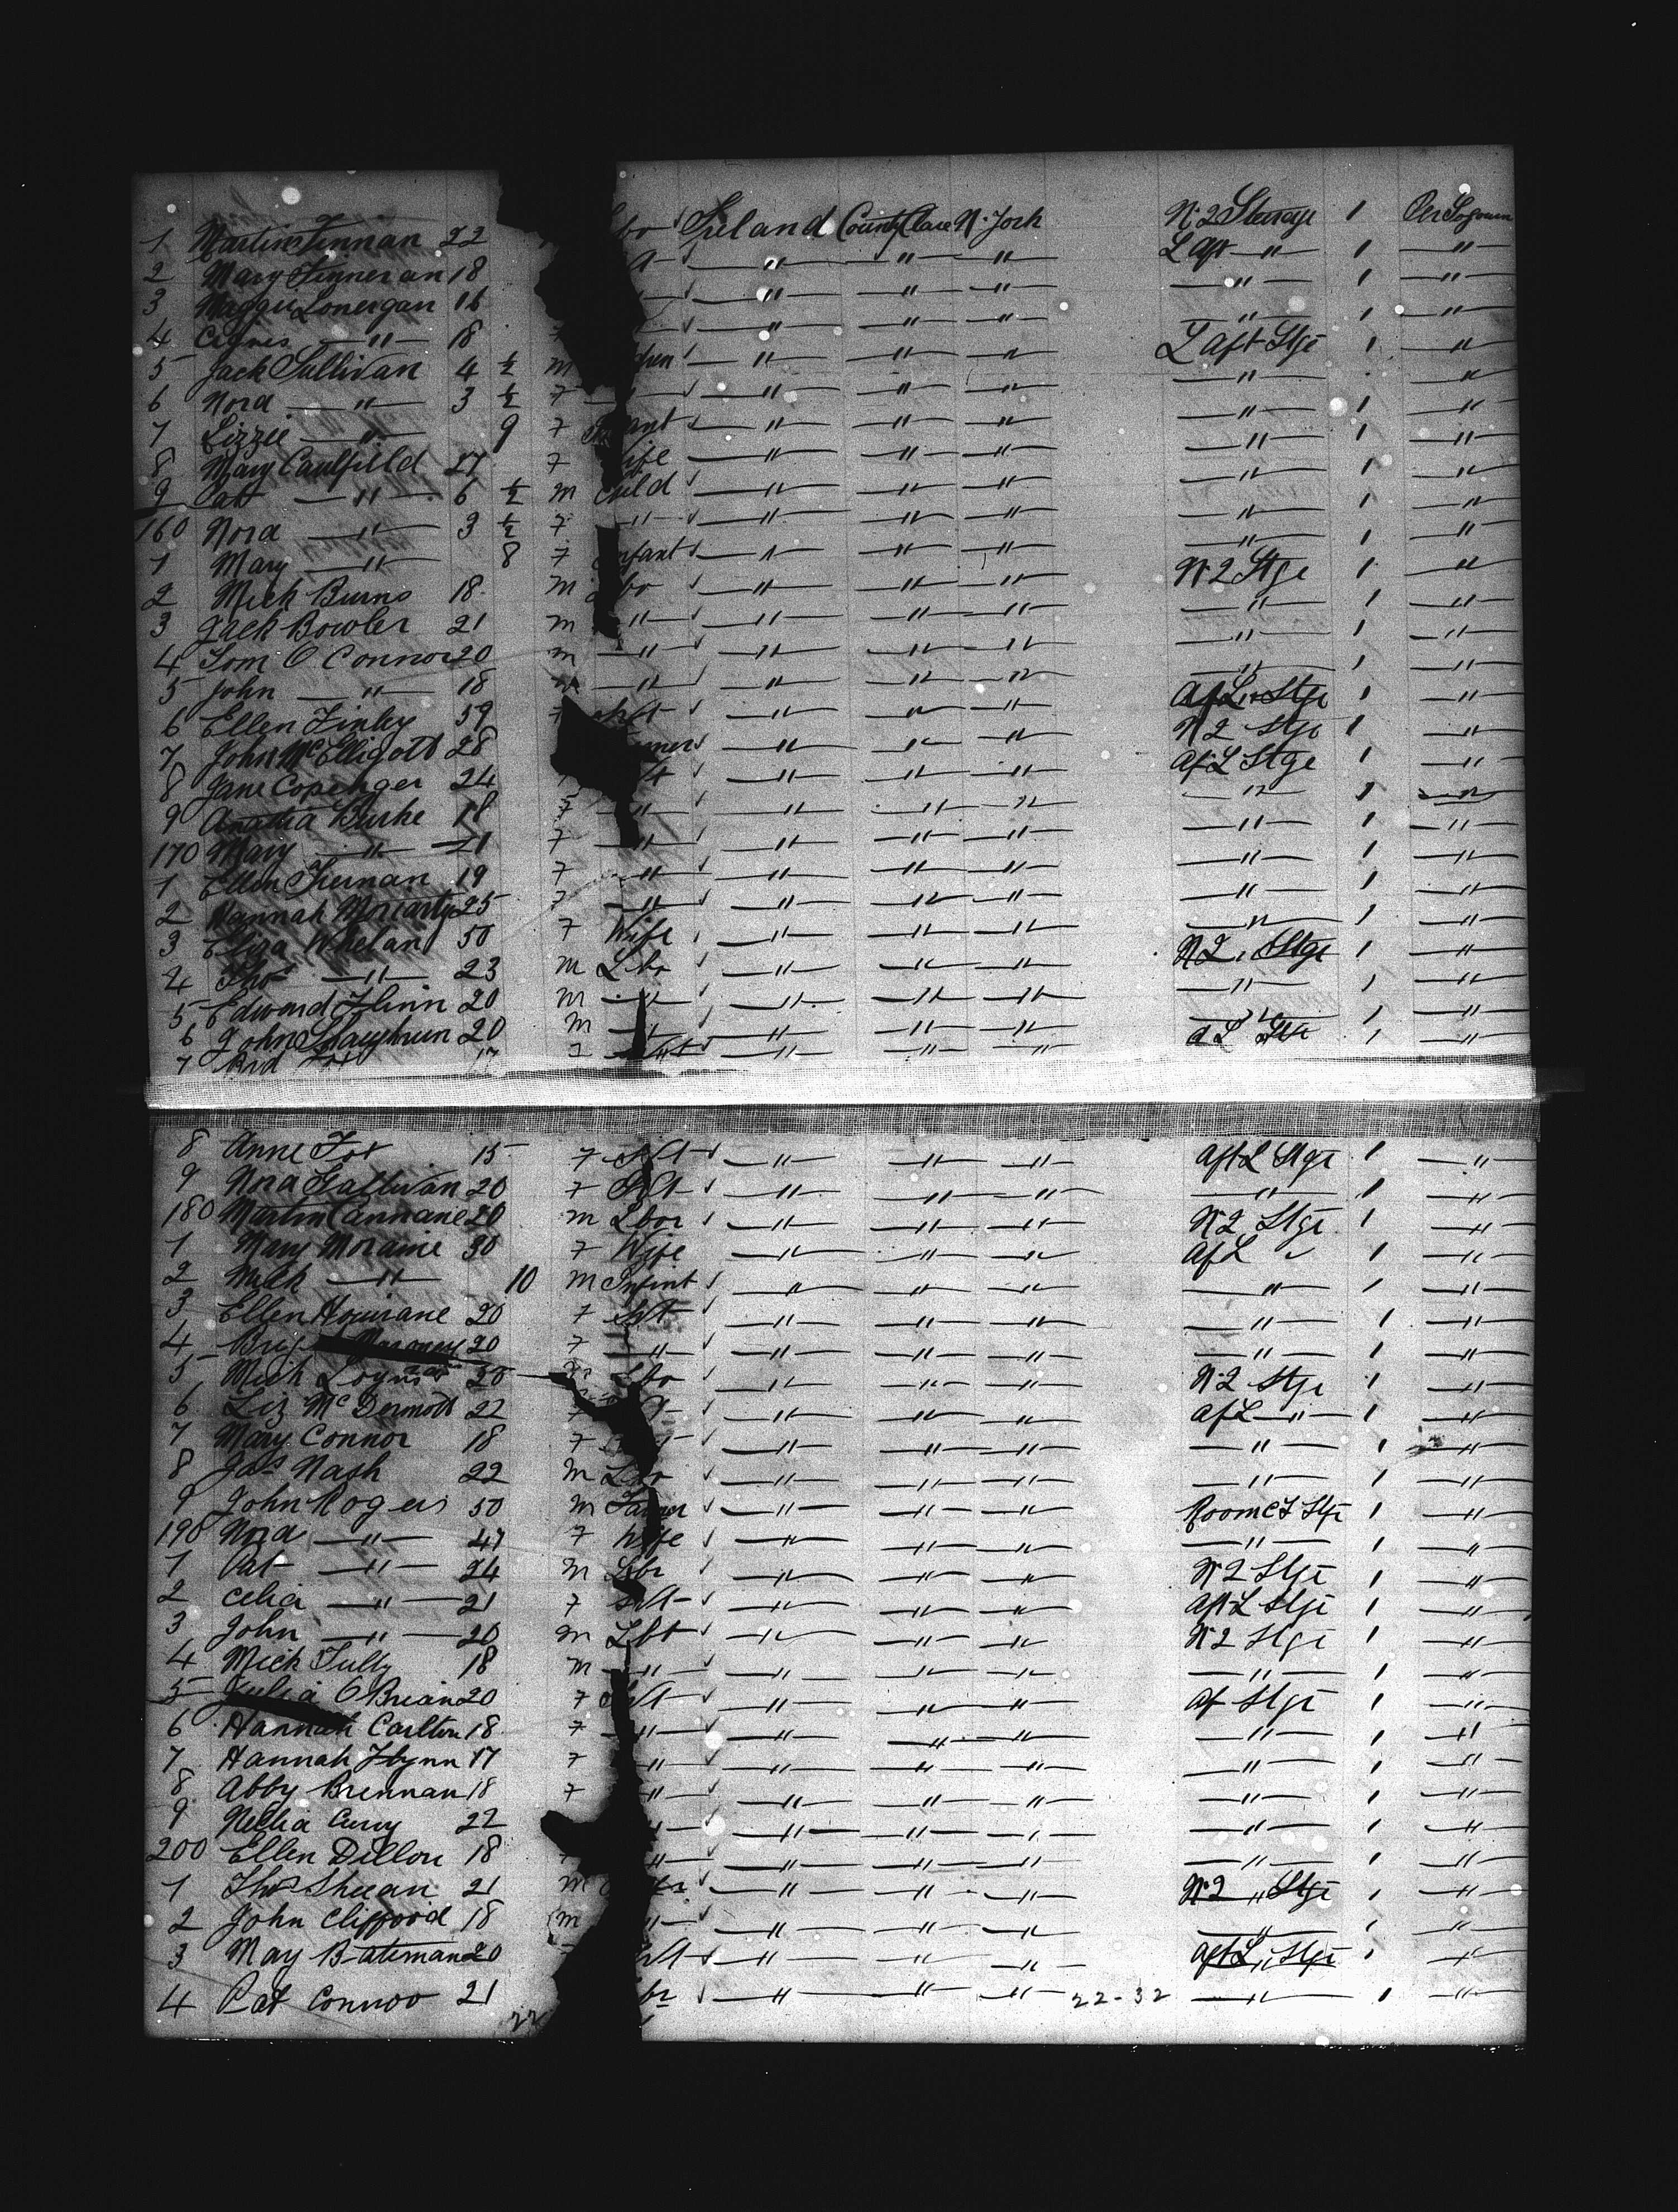 1 Martin Finnan 22 Lbo Ireland County Clare N. York N.2 Steerage 1
2 Mary Finneran 18 — " — — " — — " — L Aft — " — 1 — " —
3 Maggie Lonergan 16 — " — — " — — " — — " — 1 — " —
4 Agnes — " — 18 — " — — " — — " — — " — 1 — " —
5 Jack Sullivan 4 ½ m — " — — " — — " — L aft Stge 1 — " —
6 Nora — " — 3 ½ f — " — — " — — " — — " — — " —
7 Lizzie — " — 9 f Infant — " — — " — — " — — " — 1 — " —
8 Mary Caulfield 27 f Wife — " — — " — — " — — " — 1 — " —
9 Pat — " — 6 ½ m Child — " — — " — — " — — " — 1 — " —
160 Nora — " — 3 ½ f — " — — " — — " — — " — — " — 1 — " —
1 Mary — " — 8 f Infant — " — — " — — " — — " — 1 — " —
2 Mich Burns 18 m Lbo — " — — " — — " — N.2 Stge 1 — " —
3 Jack Bowler 21 m — " — — " — — " — — " — — " — 1 — " —
4 Tom O Connor 20 m — " — — " — — " — — " — — " — 1 — " —
5 John — " — 18 m — " — — " — — " — — " — — " — 1 — " —
6 Ellen Finley 59 f — " — — " — — " — Af L Stge 1 — " —
7 John McElligott 28 — " — — " — — " — N 2 Stge 1 — " —
8 Jane Copenger 24 — " — — " — — " — Af L Stge 1 — " —
9 Burke 18 f — " — — " — — " — — " — — " — 1 — " —
170 Mary — " — 21 f — " — — " — — " — — " — — " — 1 — " —
1 Ellen Tiernan 19 f — " — — " — — " — — " — — " — 1 — " —
2 Hannah Moriarty 25 f — " — — " — — " — — " — — " — 1 — " —
3 Eliza Whelan 50 f Wife — " — — " — — " — — " — 1 — " —
4 Thos — " — 23 m Lbo — " — — " — — " — N 2 " Stge 1 — " —
5 Edward Flinn 20 m — " — — " — — " — — " — — " — 1 — " —
6 John 20 m — " — — " — — " — — " — — " — 1 — " —
7 Brd Fox 17 f Svt — " — — " — — " — 1 — " —
8 Anne Fox 15 f Svt — " — — " — — " — Aft L Stge 1 — " —
9 Nora Sullivan 20 f Svt — " — — " — — " — — " — 1 — " —
180 Martin Cannane 20 m Lbor — " — — " — — " — N 2 Stge 1 — " —
1 Mary Moraine 30 f Wife — " — — " — — " — Af L " 1 — " —
2 Mich — " — 10 m Infint — " — — " — — " — — " — 1 — " —
3 Ellen Hourane 20 f Svt — " — — " — — " — — " — 1 — " —
4 20 f — " — — " — — " — — " — — " — 1 — " —
5 Mich 20 Lbo — " — — " — — " — N 2 Stge 1 — " —
6 Liz McDermott 22 f — " — — " — — " — Af L — " — 1 — " —
7 Mary Connor 18 f — " — — " — — " — — " — 1 — " —
8 Jas Nash 22 m Lbo — " — — " — — " — — " — 1 — " —
9 John Rogers 50 m Farmer — " — — " — — " — 1 — " —
190 Nora — " — 47 f Wife — " — — " — — " — — " — 1 — " —
1 Pat — " — 24 m Lbr — " — — " — — " — N 2 Stge 1 — " —
2 Celia — " — 21 f Svt — " — — " — — " — Aft L Stge 1 — " —
3 John — " — 20 m Lbr — " — — " — — " — N 2 Stge 1 — " —
4 Mich Tully 18 m — " — — " — — " — — " — — " — 1 — " —
5 Julia O Brian 20 f Svt — " — — " — — " — Af Stge 1 — " —
6 Hannah Carlton 18 f — " — — " — — " — — " — — " — 1 — " —
7 Hannah Flynn 17 f — " — — " — — " — — " — — " — 1 — " —
8 Abby Brennan 18 f — " — — " — — " — — " — — " — 1 — " —
9 Nellia Curry 22 — " — — " — — " — — " — — " — 1 — " —
200 Ellen Dillon 18 — " — — " — — " — — " — — " — 1 — " —
1 Thos Sheean 21 m — " — — " — — " — N 2 " Stge 1 — " —
2 John Clifford 18 m — " — — " — — " — — " — — " — 1 — " —
3 May Bateman 20 Svt — " — — " — — " — Aft L " Stge 1 — " —
4 Pat Connor 21 Lbr — " — — " — — " — 22-32 — " — 1 — " —